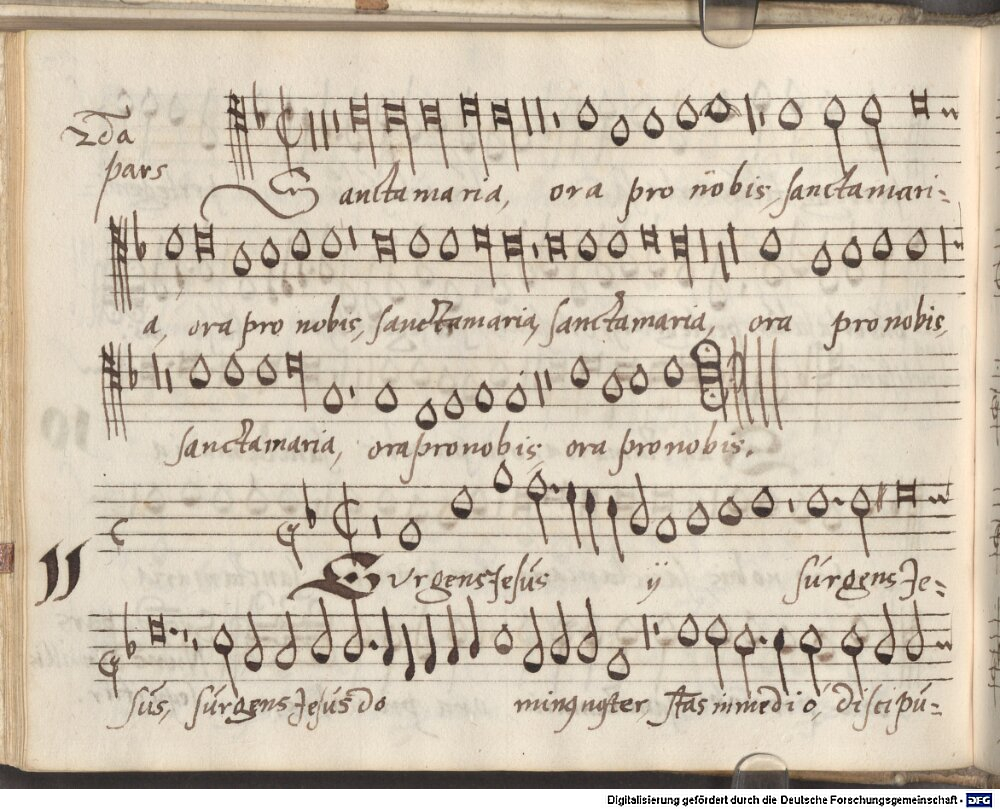 2da
pars
Sanctamaria, ora pro nobis, sanctamari-
a, ora pro nobis, sanctamaria, sanctamaria, ora pro nobis,
sanctamaria, ora pro nobis, ora pro nobis.
11
Surgens Jesús ij súrgens Je-
sús, súrgens Jesús do minq nqster, stas in medio, discipú-
Digitalisierung gefördert durch die Deutsche Forschungsgemeinschaft - DFG